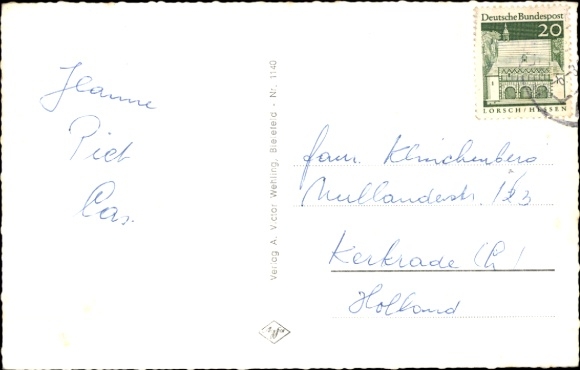 Jeanne
Piet
Cas.
Verlag A. Victor Wehling, Bielefeld - Nr. 1140
Deutsche Bundespost
20
LORSCH/HESSEN
fam. Klinckenberg
Nullanderstr. 123
Kerkrade (L)
Holland